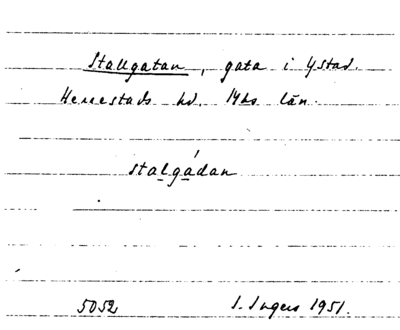 Stallgatan, gata i Ystad.
Herrestads hd. Mhs län.
stalgádan
5052 I. Ingers 1951.